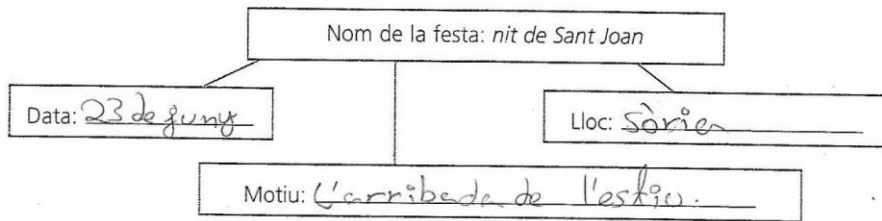 Nom de la festa: nit de Sant Joan
Data: 23 de juny
Lloc: Sòria
Motiu: L'arribada de l'estiu.